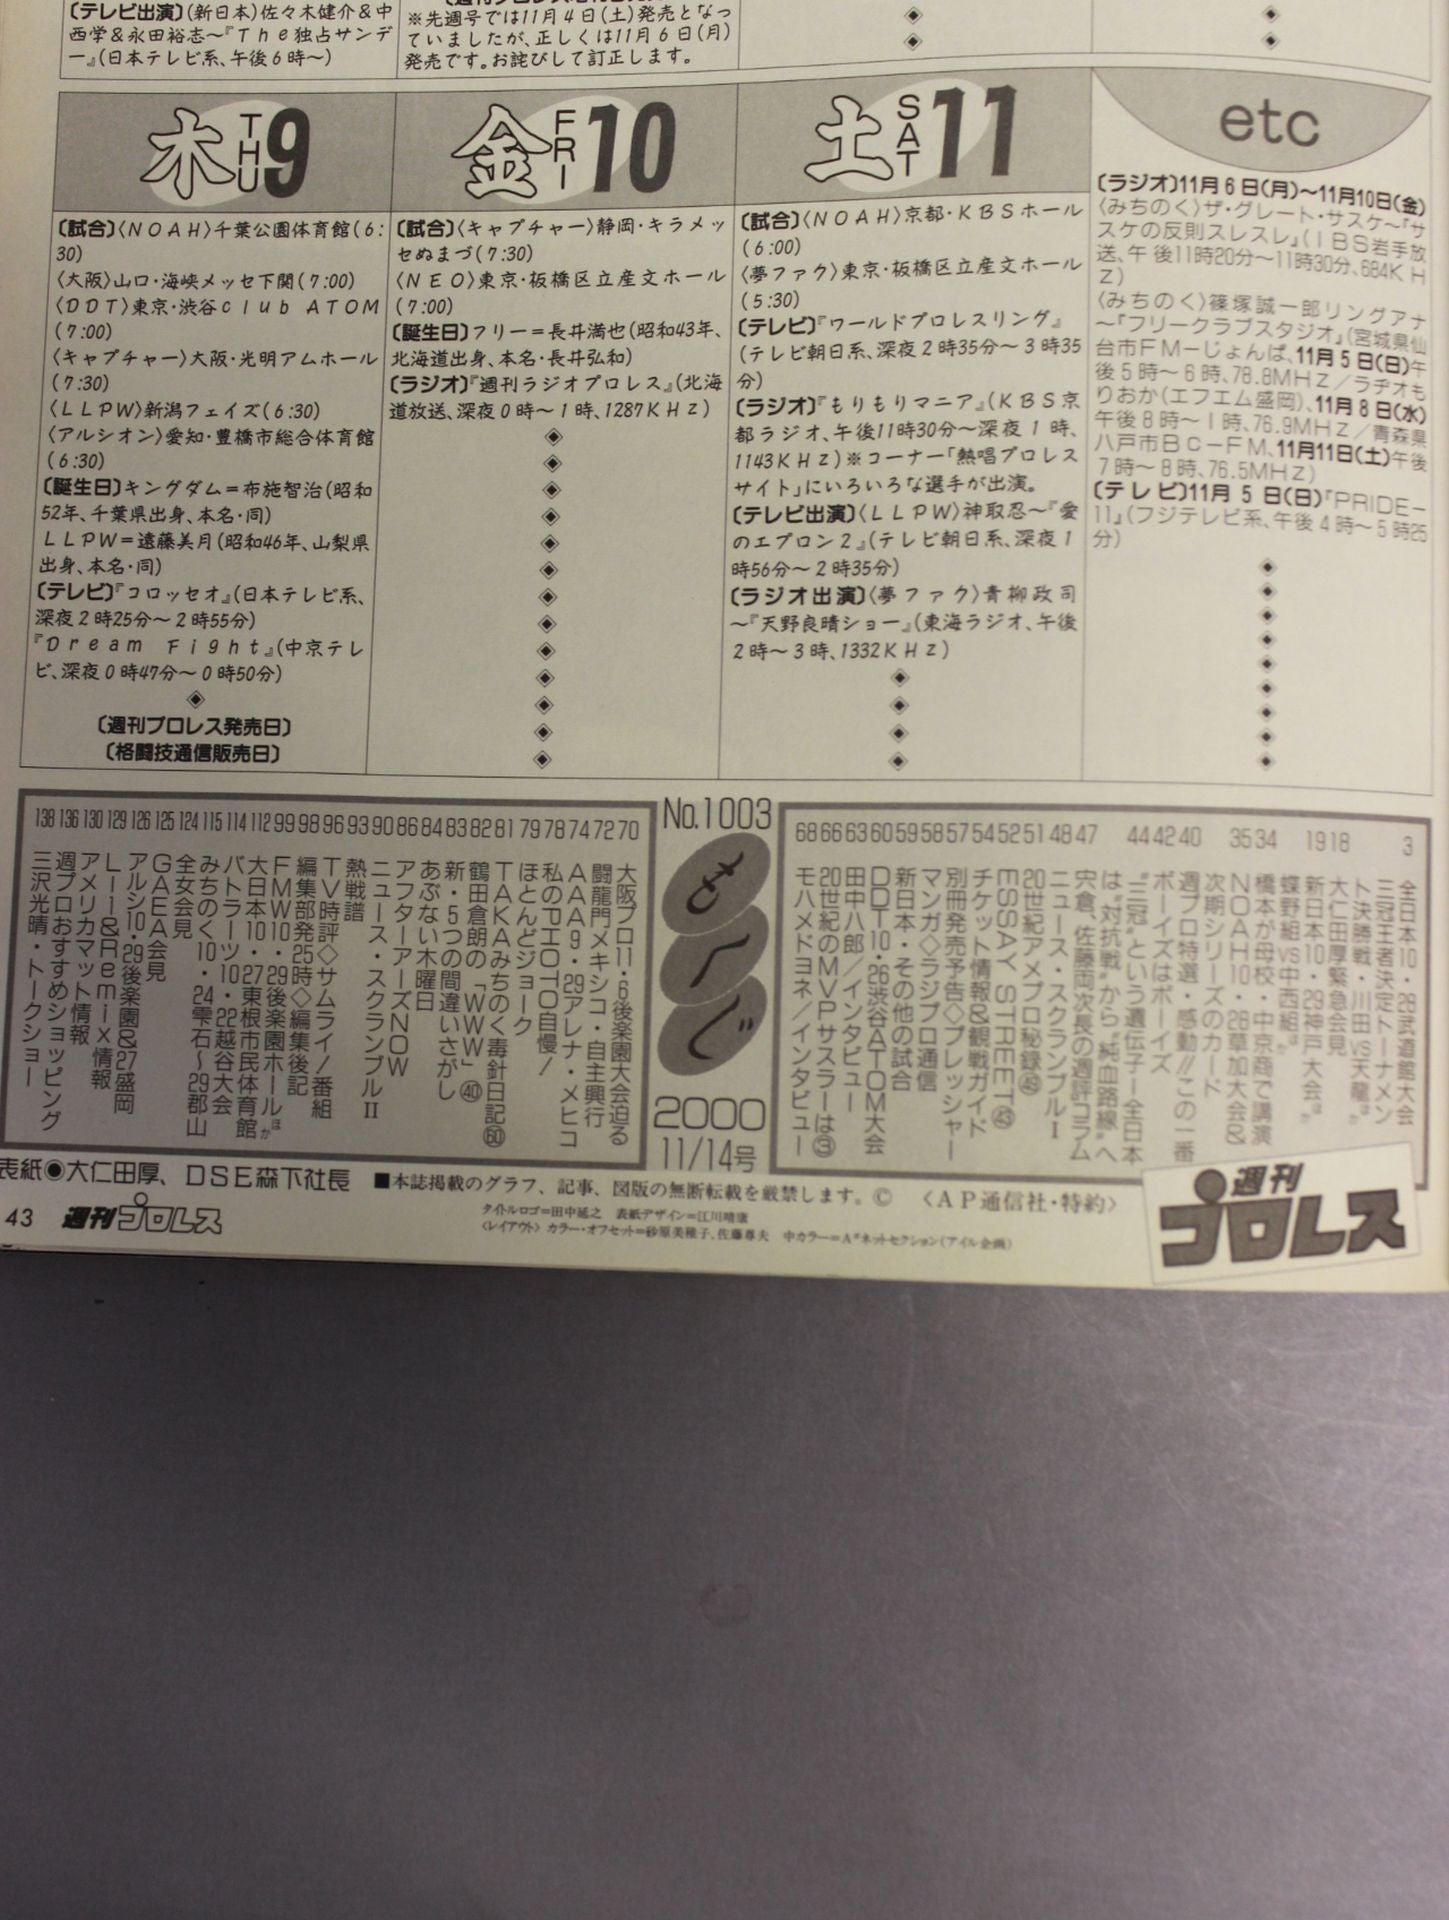 〔テレビ出演〕(新日本)佐々木健介&中
西学&永田裕志~『Ｔｈｅ独占サンデ
ー』(日本テレビ系、午後6時~)
※先週号では11月4日(土)発売となっ
ていましたが、正しくは11月6日(月)
発売です。お詫びして訂正します。
◈
◈
◈
◈
木 THU 9
〔試合〕〈ＮＯＡＨ〉千葉公園体育館(6:
30)
〈大阪〉山口・海峡メッセ下関(7:00)
〈ＤＤＴ〉東京・渋谷ｃｌｕｂ ＡＴＯＭ
(7:00)
〈キャプチャー〉大阪・光明アムホール
(7:30)
〈ＬＬＰＷ〉新潟フェイズ(6:30)
〈アルシオン〉愛知・豊橋市総合体育館
(6:30)
〔誕生日〕キングダム=布施智治(昭和
52年、千葉県出身、本名・同)
ＬＬＰＷ=遠藤美月(昭和46年、山梨県
出身、本名・同)
〔テレビ〕『コロッセオ』(日本テレビ系、
深夜2時25分~2時55分)
『Ｄｒｅａｍ Ｆｉｇｈｔ』(中京テレ
ビ、深夜0時47分~0時50分)
◈
〔週刊プロレス発売日〕
〔格闘技通信販売日〕
金 FRI 10
〔試合〕〈キャプチャー〉静岡・キラメッ
セぬまづ(7:30)
〈ＮＥＯ〉東京・板橋区立産文ホール
(7:00)
〔誕生日〕フリー=長井満也(昭和43年、
北海道出身、本名・長井弘和)
〔ラジオ〕『週刊ラジオプロレス』(北海
道放送、深夜0時~1時、1287ＫＨｚ)
◈
◈
◈
◈
◈
◈
◈
◈
◈
◈
◈
◈
◈
土 SAT 11
〔試合〕〈ＮＯＡＨ〉京都・ＫＢＳホール
(6:00)
〈夢ファク〉東京・板橋区立産文ホール
(5:30)
〔テレビ〕『ワールドプロレスリング』
(テレビ朝日系、深夜2時35分~3時35
分)
〔ラジオ〕『もりもりマニア』(ＫＢＳ京
都ラジオ、午後11時30分~深夜1時、
1143ＫＨｚ)※コーナー「熱唱プロレス
サイト」にいろいろな選手が出演。
〔テレビ出演〕〈ＬＬＰＷ〉神取忍~『愛
のエプロン2』(テレビ朝日系、深夜1
時56分~2時35分)
〔ラジオ出演〕〈夢ファク〉青柳政司
~『天野良晴ショー』(東海ラジオ、午後
2時~3時、1332ＫＨｚ)
◈
◈
◈
◈
etc
〔ラジオ〕11月6日(月)~11月10日(金)
〈みちのく〉ザ・グレート・サスケ~『サ
スケの反則スレスレ』(ＩＢＳ岩手放
送、午後11時20分~11時30分、684ＫＨ
ｚ)
〈みちのく〉篠塚誠一郎リングアナ
~『フリークラブスタジオ』(宮城県仙
台市ＦＭ-じょんぱ、11月5日(日)午
後5時~6時、78.8ＭＨｚ/ラヂオも
りおか(エフエム盛岡)、11月8日(水)
午後8時~1時、76.9ＭＨｚ/青森県
八戸市Ｂｃ-ＦＭ、11月11日(土)午後
7時~8時、76.5ＭＨｚ)
〔テレビ〕11月5日(日)『PRIDE-
11』(フジテレビ系、午後4時~5時25
分)
◈
◈
◈
◈
◈
◈
◈
◈
◈
No.1003
もくじ
2000
11/14号
3 全日本10・28武道館大会
三冠王者決定トーナメン
ト決勝戦・川田VS天龍ほか
18 大仁田厚緊急会見
19 新日本10・29神戸大会、
蝶野組VS中西組ほか
34 橋本が母校・中京商で講演
35 ＮＯＡＨ10・26草加大会&
次期シリーズのカード
40 週プロ特選・感動!!この一番
42 ボーイズはボーイズ
44 “三冠”という遺伝子―全日本
は“対抗戦”から“純血路線”へ
47 宍倉、佐藤両次長の週評コラム
48 ニュース・スクランブルⅠ
51 20世紀アメプロ秘録㊾
52 ESSAY STREET㊷
54 チケット情報&観戦ガイド
57 別冊発売予告◇プレッシャー
58 マンガ◇ラジプロ通信
59 新日本・その他の試合
60 ＤＤＴ10・26渋谷ATOM大会
63 田中八郎/インタビュー
66 20世紀のＭＶＰサスラーは③
68 モハメドヨネ/インタビュー
70 大阪プロ11・6後楽園大会迫る
72 闘龍門メキシコ・自主興行
74 ＡＡＡ9・29アレナ・メヒコ
78 私のPHOTO自慢!
79 ほとんどジョーク
81 TAKAみちのく毒針日記㊿
82 鶴田倉朗の「ＷＷＷ」㊵
83 新・5つの間違いさがし
84 あぶない木曜日
86 アフターアーズNOW
90 ニュース・スクランブルⅡ
93 熱戦譜
96 ＴＶ時評◇サムライ!番組
98 編集部発25時◇編集後記
99 ＦＭＷ10・29後楽園ホールほか
112 大日本10・27東根市民体育館
114 バトラーツ10・22越谷大会
115 みちのく10・24雫石~29郡山
124 全女会見
125 GAEA会見
126 アルシ10・29後楽園&27盛岡
129 LLL&Remix情報
130 アメリカマット情報
136 週プロおすすめショッピング
138 三沢光晴・トークショー
表紙◉大仁田厚、ＤＳＥ森下社長
■本誌掲載のグラフ、記事、図版の無断転載を厳禁します。© 〈ＡＰ通信社・特約〉
タイトルロゴ=田中延之 表紙デザイン=江川晴康
〈レイアウト〉カラー・オフセット=砂原美稚子、佐藤尊夫 中カラー=A²ネットセクション(アイル企画)
43 週刊プロレス
週刊プロレス